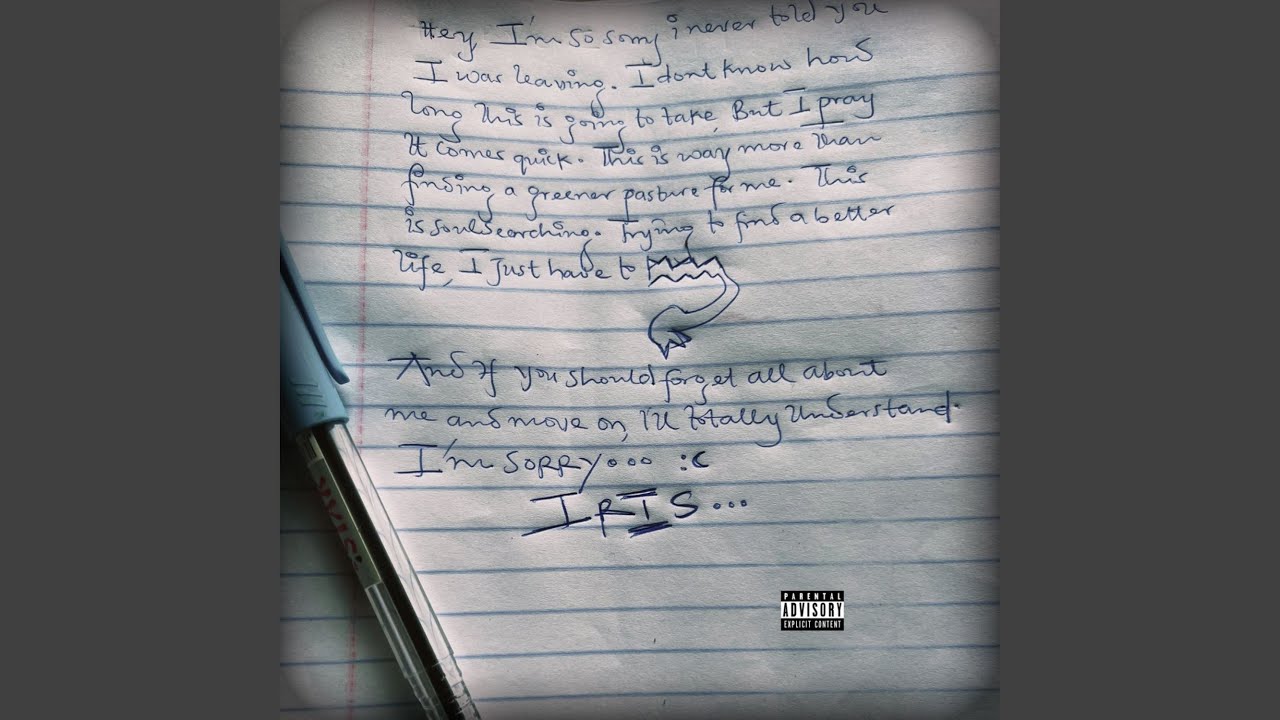 Hey I'm so sorry i never told you
I was leaving. I dont know how
long this is going to take, But I pray
It comes quick. This is way more than
finding a greener pasture for me. This
is soulsearching. Trying to find a better
life, I Just have to
And If you should forget all about
me and move on, I'll totally understand.
I'm sorry... :c
IRIS...
PARENTAL
ADVISORY
EXPLICIT CONTENT